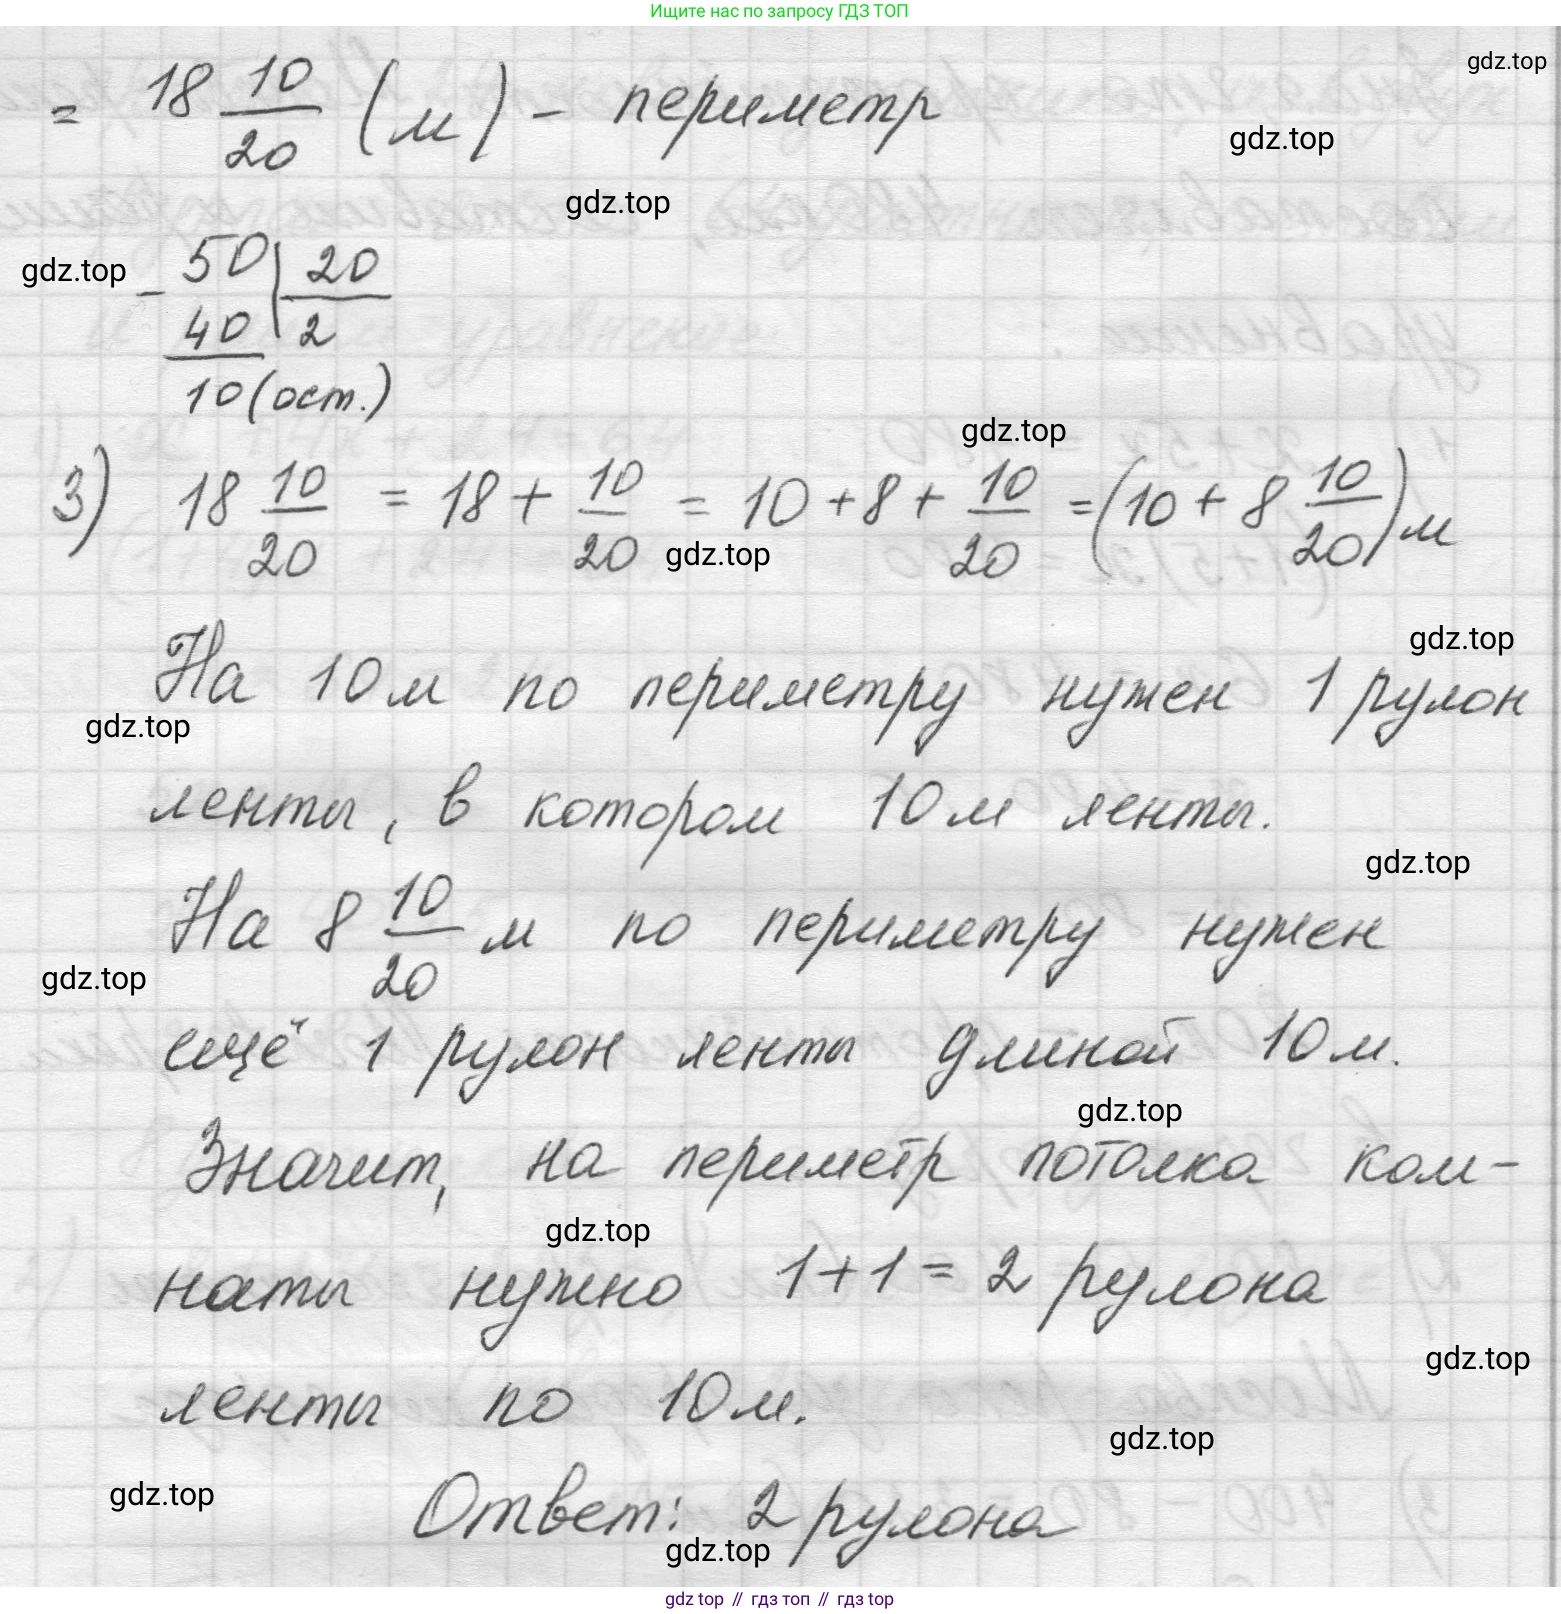 Ищите нас по запросу ГДЗ ТОП
gdz.top
= 18 10/20 (м) - периметр
gdz.top
gdz.top
gdz.top
- 50 | 20
40 | 2
10 (ост.)
gdz.top
3) 18 10/20 = 18 + 10/20 = 10 + 8 + 10/20 = (10 + 8 10/20) м
gdz.top
gdz.top
На 10 м по периметру нужен 1 рулон
gdz.top
ленты, в котором 10 м ленты.
gdz.top
На 8 10/20 м по периметру нужен
gdz.top
ещё 1 рулон ленты длиной 10 м.
gdz.top
Значит, на периметр потолка ком-
gdz.top
наты нужно 1 + 1 = 2 рулона
gdz.top
ленты по 10 м.
gdz.top
gdz.top
Ответ: 2 рулона
gdz.top
gdz top // гдз топ // гдз top